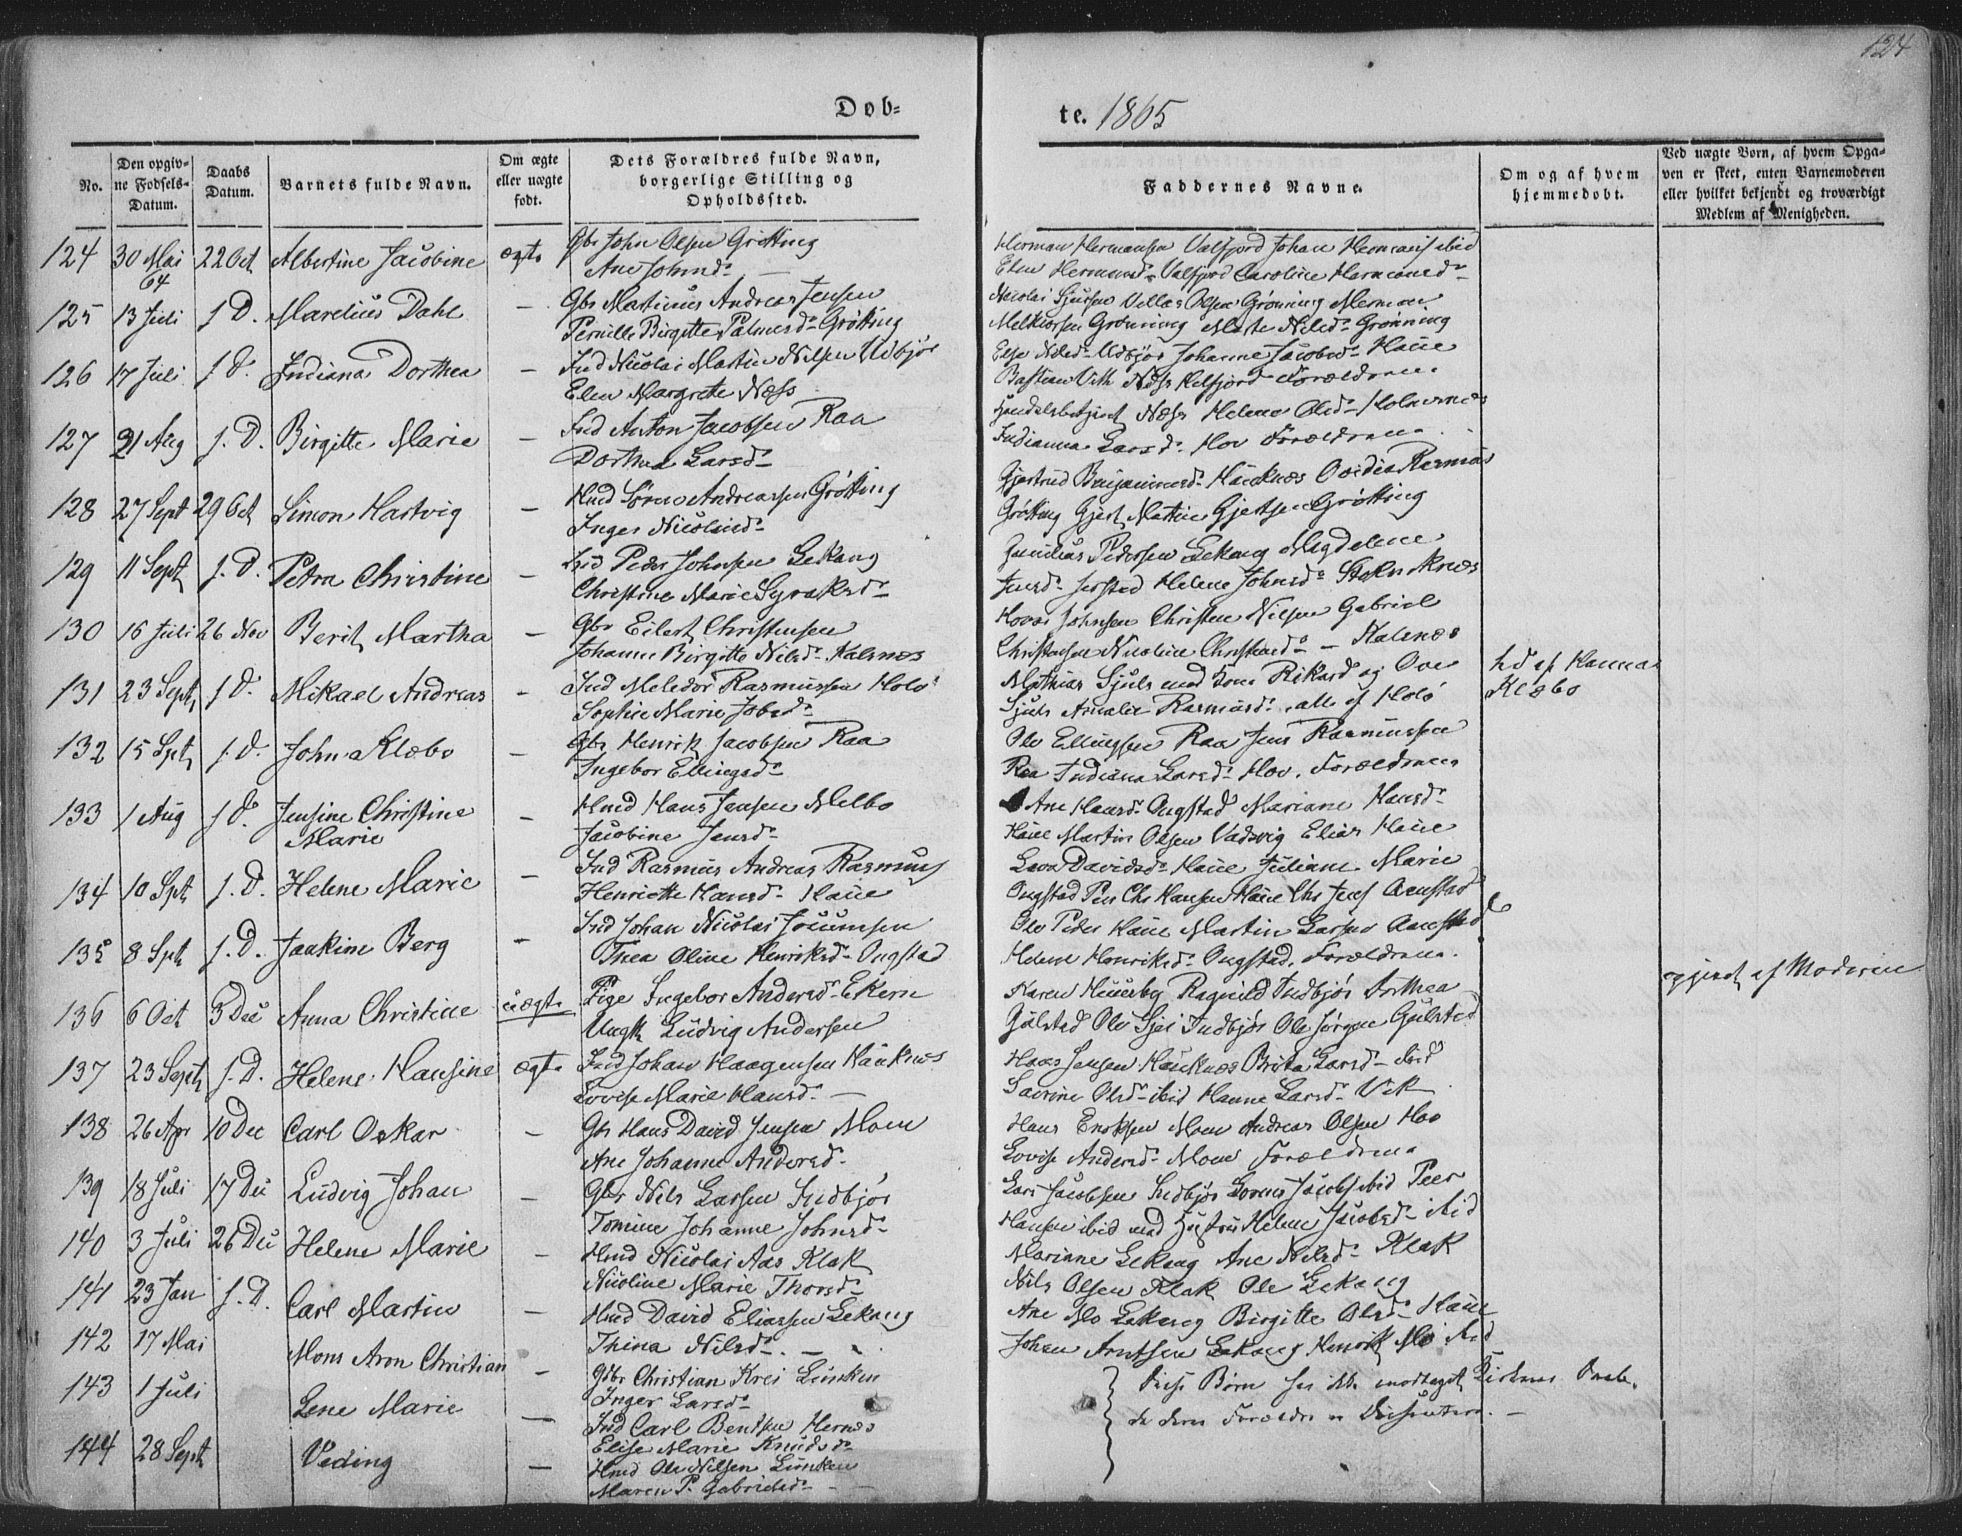 124
Døb=
te. 1865
No.
Den opgiv=
ne Fødsels=
Datum.
Daabs
Datum.
Barnets fulde Navn.
Om ægte
eller uægte
født.
Dets Forældres fulde Navn,
borgerlige Stilling og
Opholdssted.
Faddernes Navne.
Om og af hvem
hjemmedøbt.
Ved uægte Børn, af hvem Opga=
ven er skeet, enten Barnemoderen
eller hvilket bekjendt og troværdigt
Medlem af Menigheden.
124 30 Mai 64 22 Oct Albertine Jacobine ægte Gbr John Olsen Grøtting
Ane Johnsd. —
Herman Hermansen Valfjord Johan Hermans ibid
Elen Hermansd. Valfjord Caroline Hermansd.
125 13 Juli s. D. Marelius Dahl — Gbr Martinus Andreas Jensen
Pernille Birgitte Palmesd. Grøtting
Nicolai Sjursen Olsen Grønning Merman
Melkiorsen Grønning Marte Nilsd. Grønning
126 17 Juli s. D. Indiana Dorthea — Ind Nicolai Martin Nilsen Udbjør
Elen Margrete Næss
Else Nilsd. Udbjør Johanne Jacobsd. Haue
Bastian Næss Forældrene
127 21 Aug s. D. Birgitte Marie — Ind Anton Jacobsen Raa
Dorthea Larsd.
Næss Helene Olsd.
Indianna Larsd. Hov Forældrene
128 27 Sept 29 Oct Simon Hartvig — Hmd Søren Andreassen Grøtting
Inger Nicolaisd.
Gjertrud Benjaminsd. Haucknes Rasmus
Grøtting Gjert Martin Gjertsen Grøtting
129 11 Sept s. D. Petra Christine — Ind Peder Johnsen Lekang
Christine Marie Syraksd.
Pedersen Lekang Magdelene
Jensd. Helene Johnsd.
130 16 Juli 26 Nov Berit Martha — Gbr Eilert Christensen
Johanne Birgitte Nilsd. Kalsnæs
Johnsen Christen Nilsen Gabriel
Christensen Nicoline Christensd. — Kalsnæs
131 23 Sept s. D. Mikael Andreas — Ind Meledor Rasmussen Holø
Sophie Marie Jobsd.
Mathias Sjuls med Søn Rikard og Ove
Sjuls Amalie Rasmusd. alle af Holø
hd af Hanna
Klæbo
132 15 Spt s. D. Johna Klæbo — Gbr Henrik Jacobsen Raa
Ingebor Ellingsd.
Ole Ellingsen Raa Jens Rasmussen
Raa Indiana Larsd. Hov. Forældrene
133 1 Aug s. D. Jensine Christine
Marie — Hmd Hans Jensen Melbo
Jacobine Jensd.
Ane Hansd. Ongstad Mariane Hansd.
Haue Martin Olsen Vadsvig Elias Haue
134 10 Spt s. D. Helene Marie — Ind Rasmus Andreas Rasmus
Henriette Hansd. Haue
Davidsd. Haue Juliane Marie
Ongstad Hansen Haue
135 8 Spt s. D. Joakim Berg — Ind Johan Nicolai Jocumsen
Thea Oline Henriksd. Ongstad
Ole Peder Haue Martin Larsen
Helene Henriksd. Ongstad. Forældrene.
136 6 Oct 3 Dec Anna Christine uægte Pige Ingebor Andersd. Ekern
Ungk Ludvig Andersen
Karen Ragnild Indbjør Dorthea
Gulstad Ole Indbjør Ole Jørgen Gulstad
opgivet af Moderen
137 23 Sept s. D. Helene Hansine ægte Ind Johan Haagensen Hauknes
Lovise Marie Hansd. —
Hans Jensen Haucknæs Brita Larsd. ibid
Olsd. ibid Hanne Larsd. Vik
138 26 Apr 10 Dec Carl Oskar — Gbr Hans David Jensen Moen
Ane Johanne Andersd.
Hans Enoksen Moen Andreas Olsen Hov
Lovise Andersd. Moen Forældrene
139 18 Juli 17 Dec Ludvig Johan — Gbr Nils Larsen Indbjør
Tomine Johanne Johnsd.
Lars Jacobsen Indbjør Jacobs ibid Peer
Hansen ibid med Hustru Helene Jacobsd. ibid
140 3 Juli 26 Dec Helene Marie — Hmd Nicolai Aas Klak
Nicoline Marie Thorsd.
Mariane Lekang Ane Nilsd. Klak
Nils Olsen Klak Ole Lekang
141 23 Jan s. D. Carl Martin — Hmd David Eliassen Lekang
Thina Nilsd. —
Ane Mo Lekang Birgitte Olsd. Haue
Johan Arntsen Lekang Henrik Mo ibid
142 17 Mai Mons Aron Christian — Gbr Christian Krei Lunken
Inger Larsd.
143 1 Juli Lene Marie — Ind Carl Bentsen Hernes
Elise Marie Knudsd.
144 28 Sept Veding — Hmd Ole Nilsen Lunken
Maren P. Gabrielsd. —
Disse Børn har ikke modtaget Kirkens Daab,
da deres Forældre er Dissentere. —